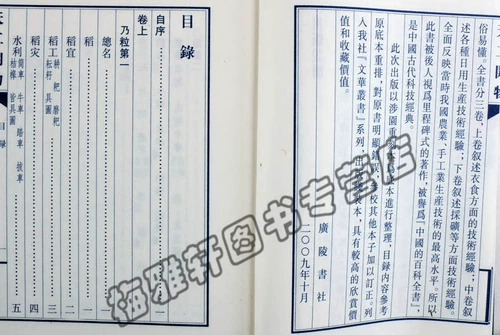 俗易懂。全書分三卷,上卷叙述衣食方面的技術經驗;中卷叙
述各種日用生産技術經驗;下卷叙述採礦等方面技術經驗。
全面反映當時我國農業、手工業生産技術的最高水平。所以
此書被後人視爲里程碑式的著作,被譽爲『中國的百科全書』,
是中國古代科技經典。
此次出版以涉園重 本進行整理,目録内容參考
原底本重排,對原書明顯錯誤,參校其他本子加以訂正。列
入我社『文華叢書』系列, 裝本,具有較高的欣賞價
值和收藏價值。
廣陵書社
二〇〇九年十月
目錄
自序 一
卷上
乃粒第一
總名 一
稻 一
稻宜 二
稻工 耕 耙 磨耙 耘耔 皆具圖 三
稻灾 四
水利 筒車 牛車 踏車 拔車 桔橰 皆具圖 五
目録
梅雅轩图书专营店